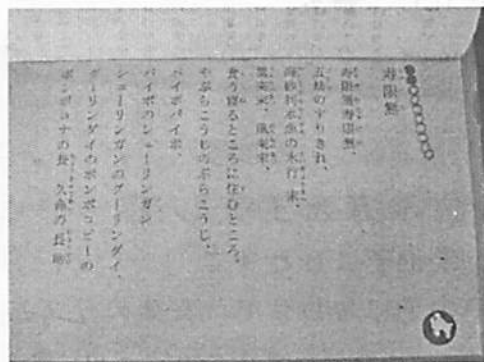 寿限無
寿限無寿限無、
五劫のすりきれ、
海砂利水魚の水行末、
雲来末、風来末、
食う寝るところに住むところ、
やぶらこうじのぶらこうじ、
パイポパイポ
パイポのシューリンガン
シューリンガンのグーリンダイ、
グーリンダイのポンポコピーの
ポンポコナの長久命の長助